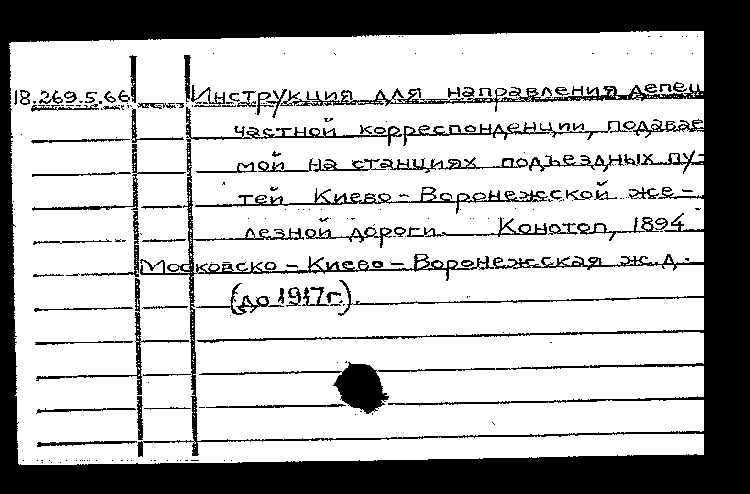 18.269.5.66 Инструкция для направления депеш
частной корреспонденции, подавае
мой на станциях подъездных пу-
тей Киево-Воронежской же-
лезной дороги. Конотоп, 1894
Московско-Киево-Воронежская ж.д.
(до 1917г.).